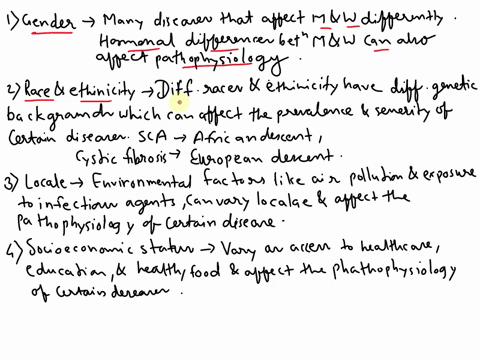 1) Gender → Many diseases that affect M & W differently.
Hormonal differences betn M & W can also
affect pathophysiology.
2) Race & ethinicity → Diff. races & ethinicity have diff. genetic
backgrounds which can affect the prevalence & severity of
certain diseases. SCA → African descent,
Cystic fibrosis → European descent.
3) Locale → Environmental factors like air pollution & exposure
to infectious agents, can vary localae & affect the
pathophysiology of certain disease.
4) Socioeconomic status → Vary an access to healthcare,
education, & healthy food & affect the phathophysiology
of certain